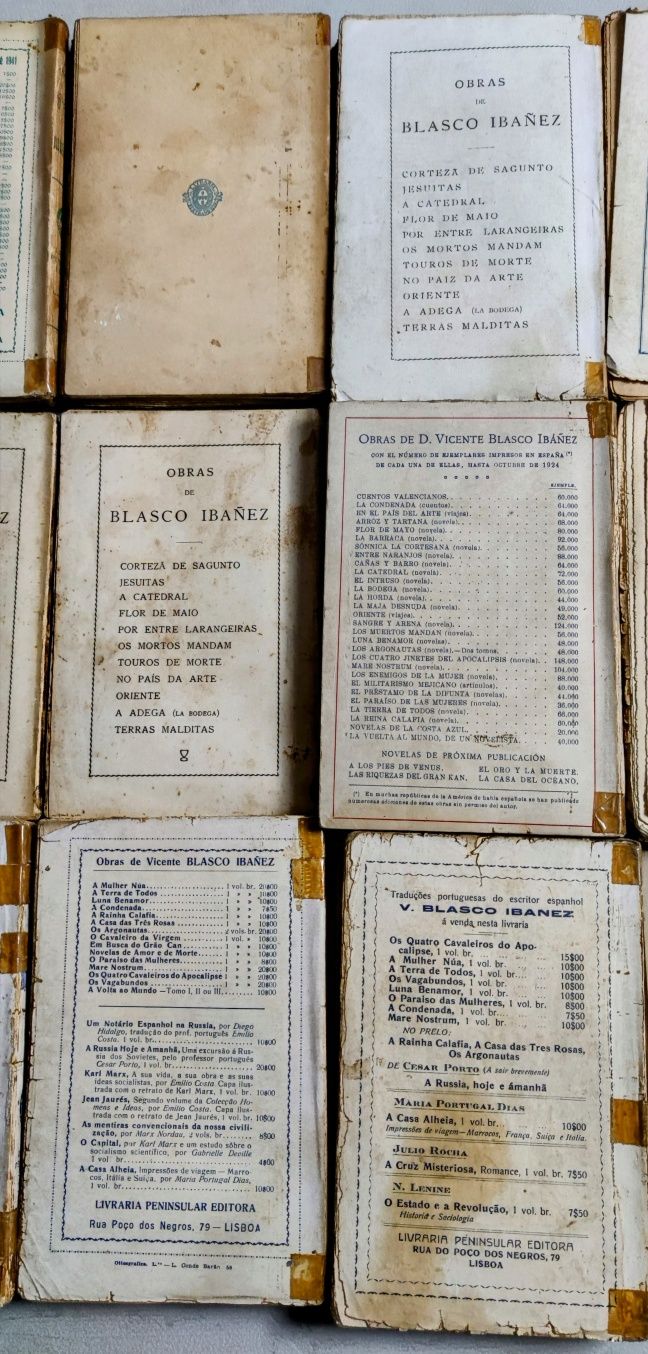 1941
OBRAS
DE
BLASCO IBAÑEZ
CORTEZÃ DE SAGUNTO
JESUITAS
A CATEDRAL
FLOR DE MAIO
POR ENTRE LARANGEIRAS
OS MORTOS MANDAM
TOUROS DE MORTE
NO PAIZ DA ARTE
ORIENTE
A ADEGA (LA BODEGA)
TERRAS MALDITAS
OBRAS
DE
BLASCO IBAÑEZ
CORTEZÃ DE SAGUNTO
JESUITAS
A CATEDRAL
FLOR DE MAIO
POR ENTRE LARANGEIRAS
OS MORTOS MANDAM
TOUROS DE MORTE
NO PAÍS DA ARTE
ORIENTE
A ADEGA (LA BODEGA)
TERRAS MALDITAS
OBRAS DE D. VICENTE BLASCO IBÁÑEZ
CON EL NÚMERO DE EJEMPLARES IMPRESOS EN ESPAÑA (*)
DE CADA UNA DE ELLAS, HASTA OCTUBRE DE 1924
EJEMPLS.
CUENTOS VALENCIANOS. 60.000
LA CONDENADA (cuentos). 61.000
EN EL PAÍS DEL ARTE (viajes). 64.000
ARROZ Y TARTANA (novela). 68.000
FLOR DE MAYO (novela). 80.000
LA BARRACA (novela). 92.000
SÓNNICA LA CORTESANA (novela). 56.000
ENTRE NARANJOS (novela). 88.000
CAÑAS Y BARRO (novela). 64.000
LA CATEDRAL (novela). 72.000
EL INTRUSO (novela). 56.000
LA BODEGA (novela). 60.000
LA HORDA (novela). 44.000
LA MAJA DESNUDA (novela). 49.000
ORIENTE (viajes). 52.000
SANGRE Y ARENA (novela). 124.000
LOS MUERTOS MANDAN (novela). 56.000
LUNA BENAMOR (novelas). 48.000
LOS ARGONAUTAS (novela).—Dos tomos. 48.000
LOS CUATRO JINETES DEL APOCALIPSIS (novela). 148.000
MARE NOSTRUM (novela). 104.000
LOS ENEMIGOS DE LA MUJER (novela). 88.000
EL MILITARISMO MEJICANO (artículos). 40.000
EL PRÉSTAMO DE LA DIFUNTA (novelas). 44.000
EL PARAÍSO DE LAS MUJERES (novela). 36.000
LA TIERRA DE TODOS (novela). 66.000
LA REINA CALAFIA (novela). 60.000
NOVELAS DE LA COSTA AZUL. 20.000
LA VUELTA AL MUNDO, DE UN NOVELISTA. 40.000
NOVELAS DE PRÓXIMA PUBLICACIÓN
A LOS PIES DE VENUS. EL ORO Y LA MUERTE.
LAS RIQUEZAS DEL GRAN KAN. LA CASA DEL OCÉANO.
(*) En muchas repúblicas de la América de habla española se han publicado
numerosas ediciones de estas obras sin permiso del autor.
Obras de Vicente BLASCO IBAÑEZ
A Mulher Núa 1 vol. br. 20$00
A Terra de Todos 1 » » 10$00
Luna Benamor 1 » » 10$00
A Condenada 1 » » 7$50
A Rainha Calafia 1 » » 10$00
A Casa das Três Rosas 1 » » 10$00
Os Argonautas 2 vols. br. 20$00
O Cavaleiro da Virgem 1 vol. » 10$00
Em Busca do Grão Can 1 » » 10$00
Novelas de Amor e de Morte 1 » » 10$00
O Paraiso das Mulheres 1 » » 8$00
Mare Nostrum 1 » » 20$00
Os Quatro Cavaleiros do Apocalipse 1 » » 20$00
Os Vagabundos 1 » » 20$00
A Volta ao Mundo —Tomo I, II ou III, 10$00
Um Notário Espanhol na Russia, por Diego
Hidalgo, tradução do prof. português Emílio
Costa. 1 vol. br. 10$00
A Russia Hoje e Amanhã, Uma excursão á Rus-
sia dos Sovietes, pelo professor português
Cesar Porto, 1 vol. br. 20$00
Karl Marx, A sua vida, a sua obra e as suas
ideas socialistas, por Emílio Costa. Capa ilus-
trada com o retrato de Karl Marx, 1 vol. br. 10$00
Jean Jaurés, Segundo volume da Colecção Ho-
mens e Ideas, por Emílio Costa. Capa ilus-
trada com o retrato de Jean Jaurés, 1 vol. br. 10$00
As mentiras convencionais da nossa civili-
zação, por Max Nordau, 2 vols. br. 8$00
O Capital, por Karl Marx e um estudo sôbre o
socialismo scientífico, por Gabrielle Deville
1 vol br. 4$00
A Casa Alheia, Impressões de viagem — Marro-
cos, Itália e Suíça, por Maria Portugal Dias,
1 vol. br. 10$00
LIVRARIA PENINSULAR EDITORA
Rua Poço dos Negros, 79 — LISBOA
Ottosgrafica. L.da — L. Conde Barão 50
Traduções portuguesas do escritor espanhol
V. BLASCO IBANEZ
á venda nesta livraria
Os Quatro Cavaleiros do Apo-
calipse, 1 vol. br. 15$00
A Mulher Núa, 1 vol. br. 10$00
A Terra de Todos, 1 vol. br. 10$00
Os Vagabundos, 1 vol. br. 10$00
Luna Benamor, 1 vol. br. 10$00
O Paraiso das Mulheres, 1 vol. br. 8$00
A Condenada, 1 vol. br. 7$50
Mare Nostrum, 1 vol. br. 10$00
NO PRELO:
A Rainha Calafia, A Casa das Tres Rosas,
Os Argonautas
DE CESAR PORTO (A sair brevemente)
A Russia, hoje e ámanhã
MARIA PORTUGAL DIAS
A Casa Alheia, 1 vol. br. 10$00
Impressões de viagem—Marrocos, França, Suiça e Italia.
JULIO ROCHA
A Cruz Misteriosa, Romance, 1 vol. br. 7$50
N. LENINE
O Estado e a Revolução, 1 vol. br. 7$50
Historia e Sociologia
LIVRARIA PENINSULAR EDITORA
RUA DO POÇO DOS NEGROS, 79
LISBOA